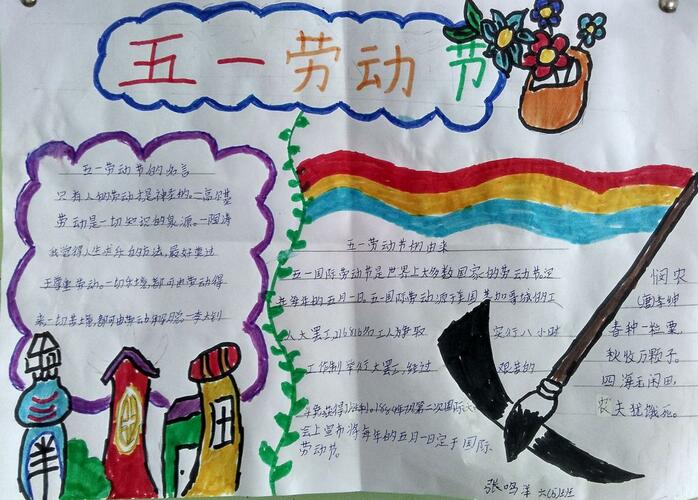 五一劳动节
五一劳动节的名言
只有人的劳动才是神圣的。一高尔基
劳动是一切知识的泉源。一陶铸
我觉得人生求乐的方法,最好莫过
于尊重劳动。一切乐境,都可由劳动得
来一切苦境,都可由劳动解脱。一李大钊
五一劳动节的由来
五一国际劳动节是世界上大多数国家的劳动节
在每年的五月一日五一国际劳动源于美国芝加哥城的工
人大罢工 工人争取 实行八小时
工作制举行大罢工,经过 艰苦的
第二次国际
会上宣布将每年的五月一日定于国际
劳动节。
悯农
(唐)李绅
春种一粒粟,
秋收万颗子。
四海无闲田,
农夫犹饿死。
张鸣洋 六(5)班